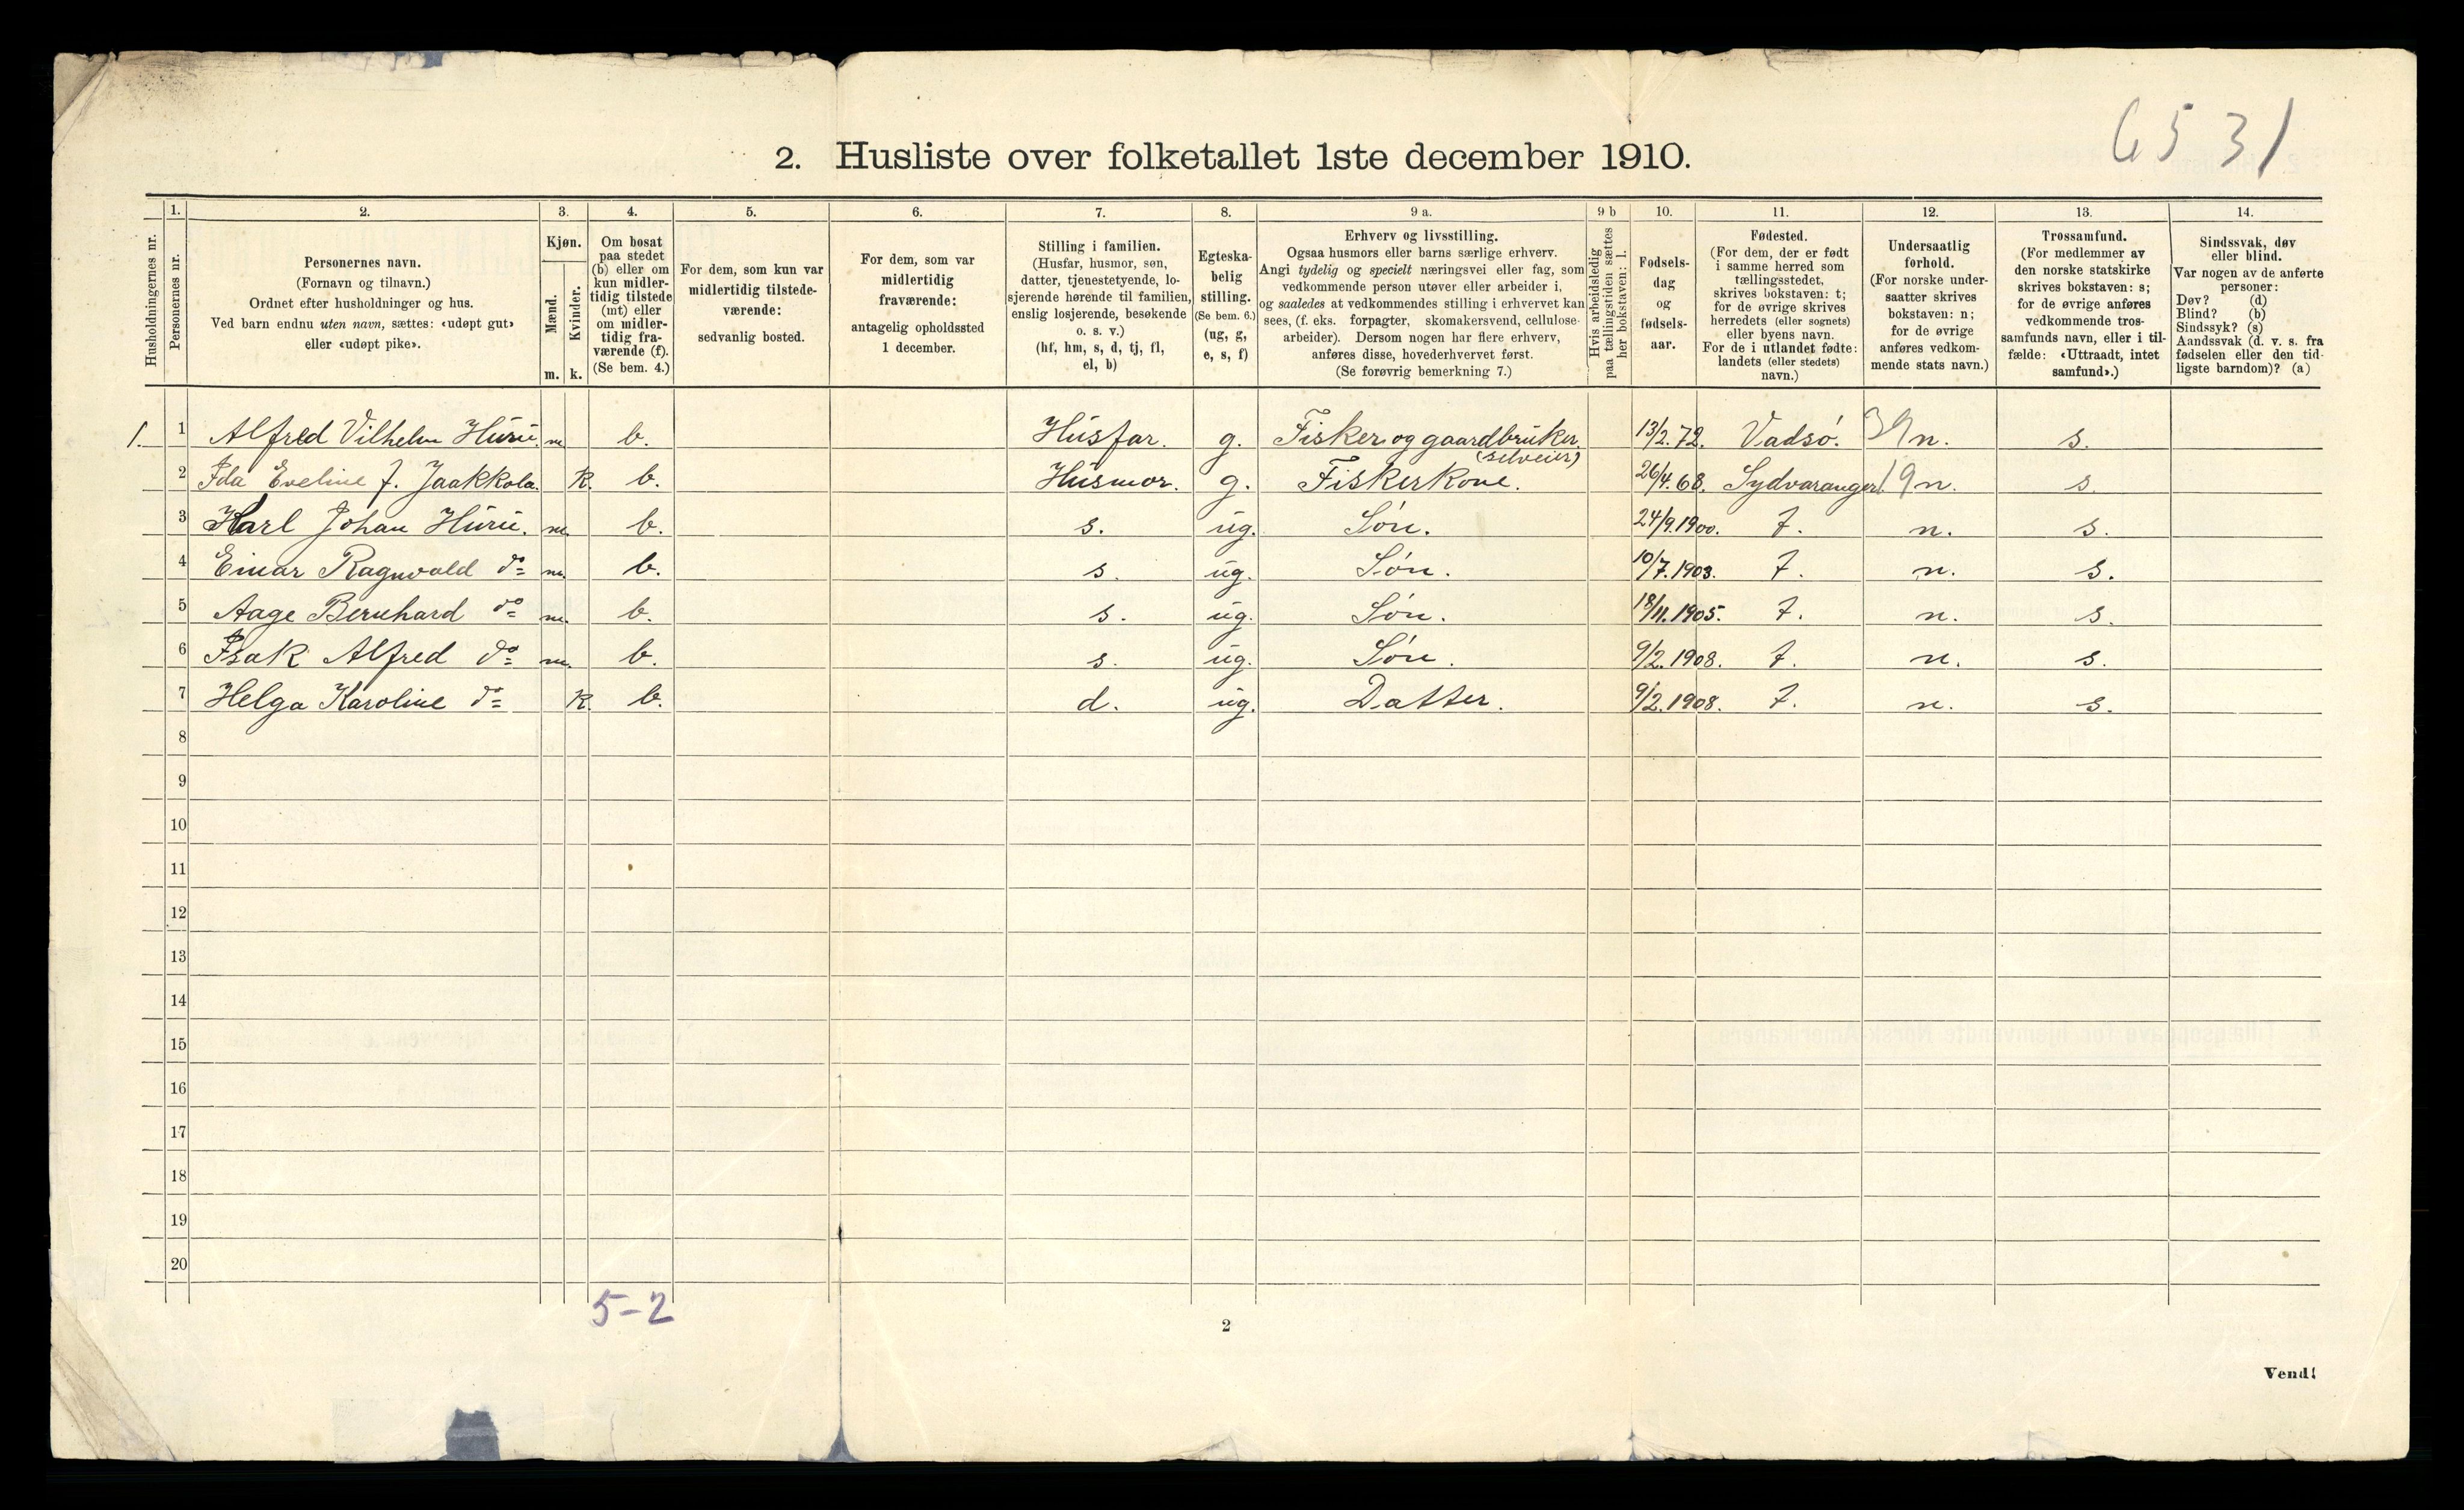 6531
2. Husliste over folketallet 1ste december 1910.
Husholdningernes nr.
1.
Personernes nr.
2.
Personernes navn.
(Fornavn og tilnavn.)
Ordnet efter husholdninger og hus.
Ved barn endnu uten navn, sættes: «udøpt gut»
eller «udøpt pike».
3.
Kjøn.
Mænd.
Kvinder.
m. k.
4.
Om bosat
paa stedet
(b) eller om
kun midler-
tidig tilstede
(mt) eller
om midler-
tidig fra-
værende (f).
(Se bem. 4.)
5.
For dem, som kun var
midlertidig tilstede-
værende:
sedvanlig bosted.
6.
For dem, som var
midlertidig
fraværende:
antagelig opholdssted
1 december.
7.
Stilling i familien.
(Husfar, husmor, søn,
datter, tjenestetyende, lo-
sjerende hørende til familien,
enslig losjerende, besøkende
o. s. v.)
(hf, hm, s, d, tj, fl,
el, b)
8.
Egteska-
belig
stilling.
(Se bem. 6.)
(ug, g,
e, s, f)
9 a.
Erhverv og livsstilling.
Ogsaa husmors eller barns særlige erhverv.
Angi tydelig og specielt næringsvei eller fag, som
vedkommende person utøver eller arbeider i,
og saaledes at vedkommendes stilling i erhvervet kan
sees, (f. eks. forpagter, skomakersvend, cellulose-
arbeider). Dersom nogen har flere erhverv,
anføres disse, hovederhvervet først.
(Se forøvrig bemerkning 7.)
9 b
Hvis arbeidsledig
paa tællingstiden sættes
her bokstaven: l.
10.
Fødsels-
dag
og
fødsels-
aar.
11.
Fødested.
(For dem, der er født
i samme herred som
tællingsstedet,
skrives bokstaven: t;
for de øvrige skrives
herredets (eller sognets)
eller byens navn.
For de i utlandet fødte:
landets (eller stedets)
navn.)
12.
Undersaatlig
forhold.
(For norske under-
saatter skrives
bokstaven: n;
for de øvrige
anføres vedkom-
mende stats navn.)
13.
Trossamfund.
(For medlemmer av
den norske statskirke
skrives bokstaven: s;
for de øvrige anføres
vedkommende tros-
samfunds navn, eller i til-
fælde: «Uttraadt, intet
samfund».)
14.
Sindssvak, døv
eller blind.
Var nogen av de anførte
personer:
Døv? (d)
Blind? (b)
Sindssyk? (s)
Aandssvak (d. v. s. fra
fødselen eller den tid-
ligste barndom)? (a)
1. 1 Alfred Vilhelm Huru. m b. Husfar. g. Fisker og gaardbruker. 13/2. 72. Vadsø. 39 n. s.
(selveier)
2 Ida Eveline f. Jaakkola. k. b. Husmor. g. Fiskerkone. 26/4. 68. Sydvaranger. 19 n. s.
3 Karl Johan Huru. m. b. s. ug. Søn. 24/9. 1900. t. n. s.
4 Einar Ragnvald do m. b. s. ug. Søn. 10/7. 1903. t. n. s.
5 Aage Bernhard do m. b. s. ug. Søn. 18/11. 1905. t. n. s.
6 Isak Alfred do m. b. s. ug. Søn. 9/2. 1908. t. n. s.
7 Helga Karoline do k. b. d. ug. Datter. 9/2. 1908. t. n. s.
8
9
10
11
12
13
14
15
16
17
18
19
20
5-2
2
Vend!